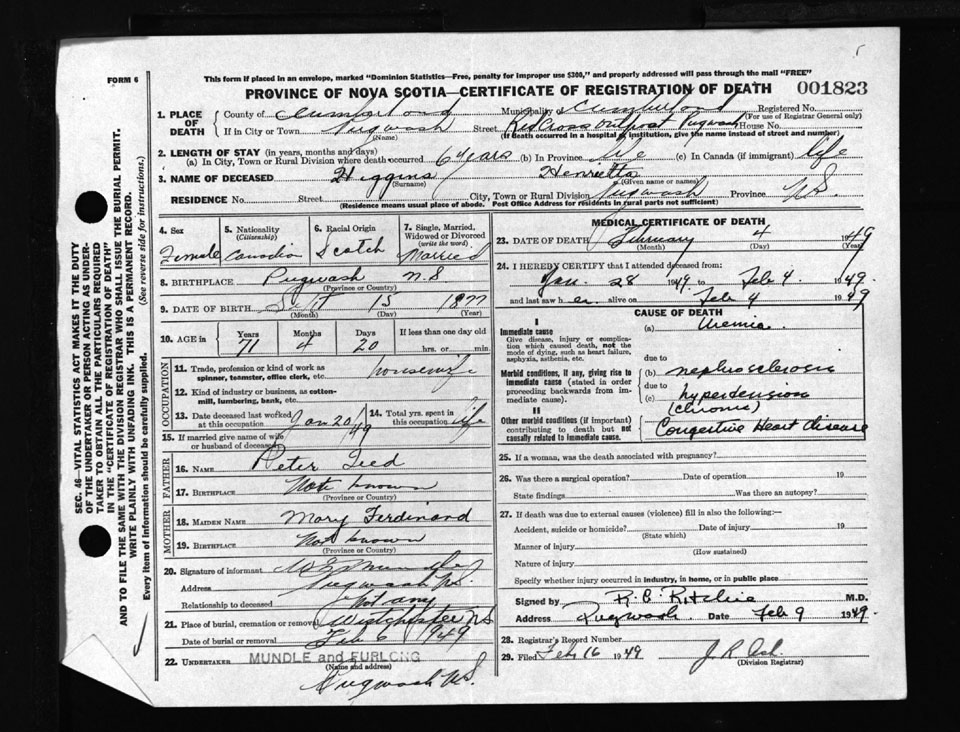 FORM 6
This form if placed in an envelope, marked "Dominion Statistics—Free, penalty for improper use $300," and properly addressed will pass through the mail "FREE"
PROVINCE OF NOVA SCOTIA—CERTIFICATE OF REGISTRATION OF DEATH 001823
1. PLACE OF DEATH County of Cumberland Municipality of Cumberland Registered No.
(For use of Registrar General only)
If in City or Town Pugwash Street Red Cross Outpost Pugwash House No.
(Name) (If death occurred in a hospital or institution, give the name instead of street and number)
2. LENGTH OF STAY (in years, months and days)
(a) In City, Town or Rural Division where death occurred 6 years (b) In Province life (c) In Canada (if immigrant) life
3. NAME OF DECEASED Higgins Henrietta
(Surname) (Given name or names)
RESIDENCE No. Street City, Town or Rural Division Pugwash Province N.S.
(Residence means usual place of abode. Post Office Address for residents in rural parts not sufficient)
4. Sex Female
5. Nationality (Citizenship) Canadian
6. Racial Origin Scotch
7. Single, Married, Widowed or Divorced (write the word) Married
8. BIRTHPLACE Pugwash N.S
(Province or Country)
9. DATE OF BIRTH Sept 15 1877
(Month) (Day) (Year)
10. AGE in Years 71 Months 4 Days 20 If less than one day old hrs. or min.
OCCUPATION
11. Trade, profession or kind of work as spinner, teamster, office clerk, etc. housewife
12. Kind of industry or business, as cotton-mill, lumbering, bank, etc.
13. Date deceased last worked at this occupation Jan 20/49
14. Total yrs. spent in this occupation life
15. If married give name of wife or husband of deceased
FATHER
16. NAME Peter Teed
17. BIRTHPLACE Not known
(Province or Country)
MOTHER
18. MAIDEN NAME Mary Ferdinand
19. BIRTHPLACE Not known
(Province or Country)
20. Signature of informant
Address Pugwash N.S.
Relationship to deceased Not any
21. Place of burial, cremation or removal Westchester N.S
Date of burial or removal Feb 6 1949
22. UNDERTAKER MUNDLE and FURLONG
(Name and address)
Pugwash N.S.
MEDICAL CERTIFICATE OF DEATH
23. DATE OF DEATH February 4 1949
(Month) (Day) (Year)
24. I HEREBY CERTIFY that I attended deceased from:
Jan. 28 1949. to Feb 4 1949.
and last saw her alive on Feb 4 1949
CAUSE OF DEATH
I
Immediate cause
Give disease, injury or complication which caused death, not the mode of dying, such as heart failure, asphyxia, asthenia, etc.
(a) Uremia.
due to
Morbid conditions, if any, giving rise to immediate cause (stated in order proceeding backwards from immediate cause).
(b) nephrosclerosis
due to
(c) hypertension
(chronic)
II
Other morbid conditions (if important) contributing to death but not causally related to immediate cause.
Congestive Heart disease
25. If a woman, was the death associated with pregnancy?
26. Was there a surgical operation? Date of operation 19
State findings Was there an autopsy?
27. If death was due to external causes (violence) fill in also the following:—
Accident, suicide or homicide? Date of injury 19
(State which)
Manner of injury
(How sustained)
Nature of injury
Specify whether injury occurred in industry, in home, or in public place
Signed by R. B. Ritchie M.D.
Address Pugwash. Date Feb 9 1949.
28. Registrar's Record Number
29. Filed Feb 16 1949
(Division Registrar)
SEC. 46—VITAL STATISTICS ACT MAKES IT THE DUTY
OF THE UNDERTAKER OR PERSON ACTING AS UNDER-
TAKER TO OBTAIN ALL THE PARTICULARS REQUIRED
IN THE "CERTIFICATE OF REGISTRATION OF DEATH"
AND TO FILE THE SAME WITH THE DIVISION REGISTRAR WHO SHALL ISSUE THE BURIAL PERMIT.
WRITE PLAINLY WITH UNFADING INK. THIS IS A PERMANENT RECORD.
Every item of information should be carefully supplied. (See reverse side for instructions.)